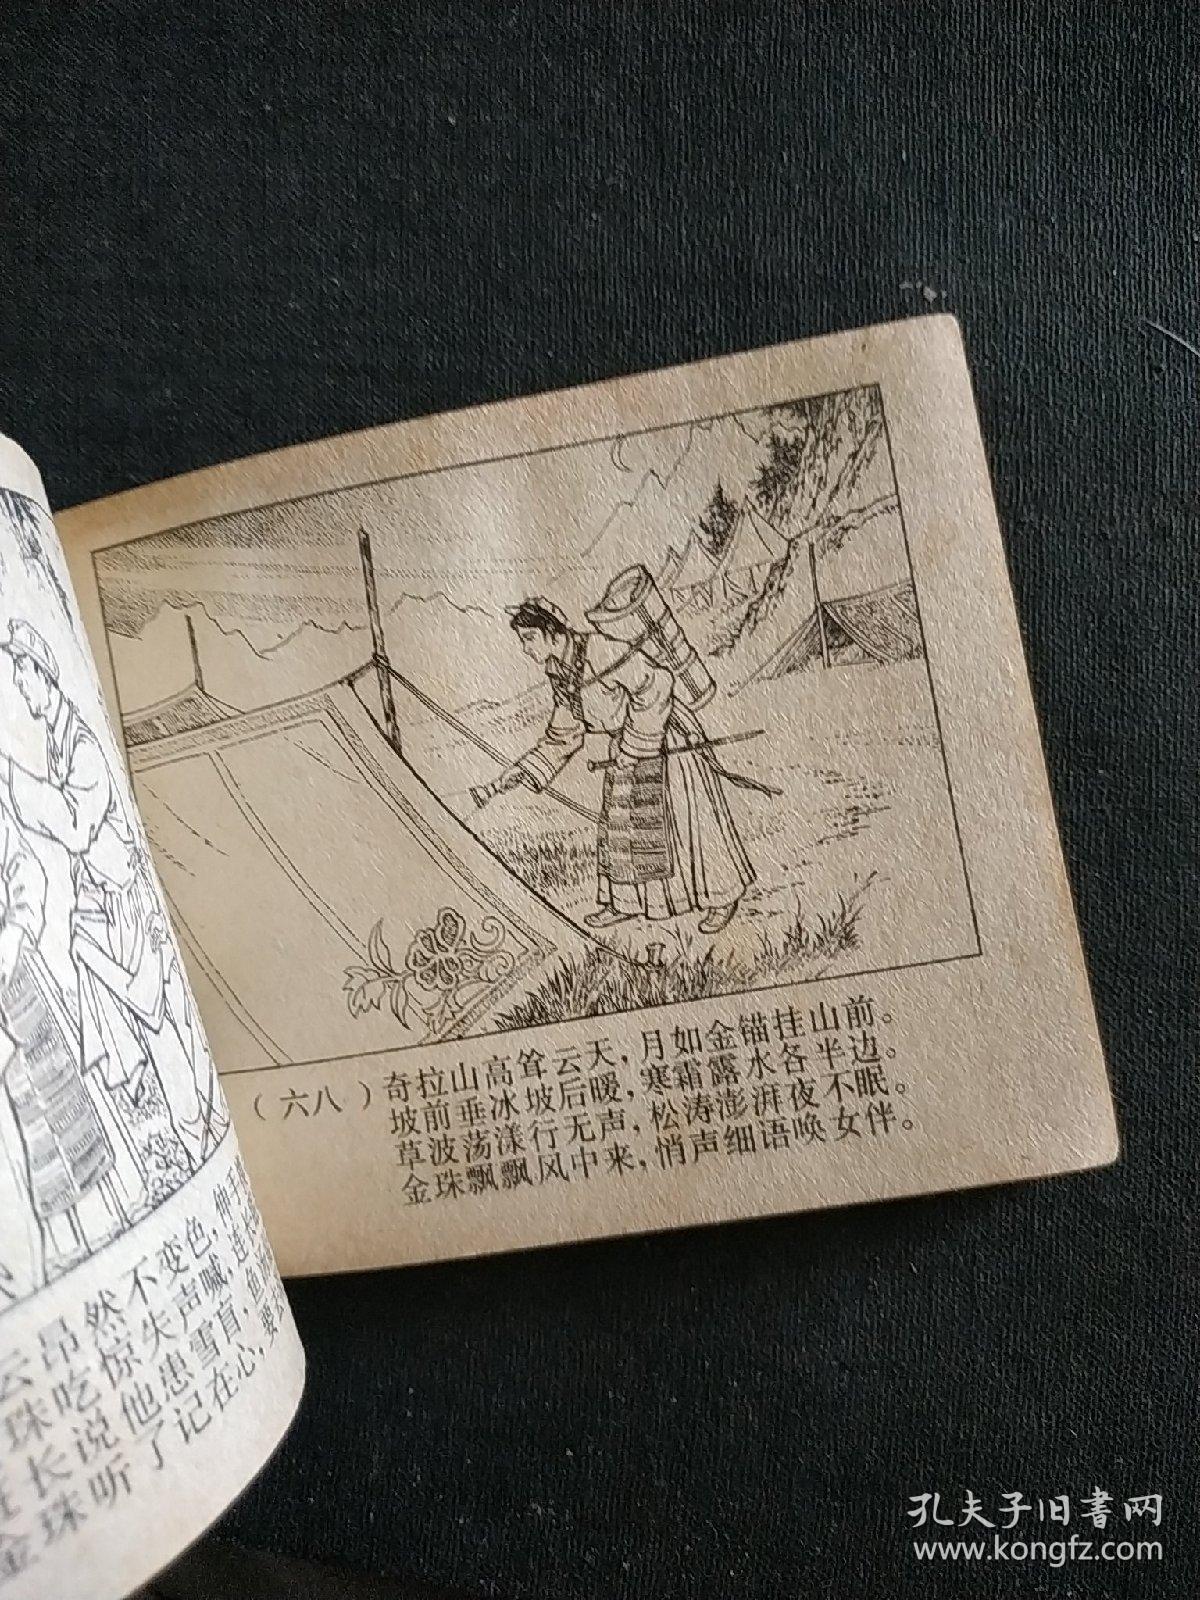 （六八）奇拉山高耸云天，月如金锚挂山前。
坡前垂冰坡后暖，寒霜露水各半边。
草波荡漾行无声，松涛澎湃夜不眠。
金珠飘飘风中来，悄声细语唤女伴。
云昂然不变色，伸手
珠吃惊失声喊，连长
长说他患雪盲，鱼
金珠听了记在心，要
孔夫子旧書网
www.kongfz.com